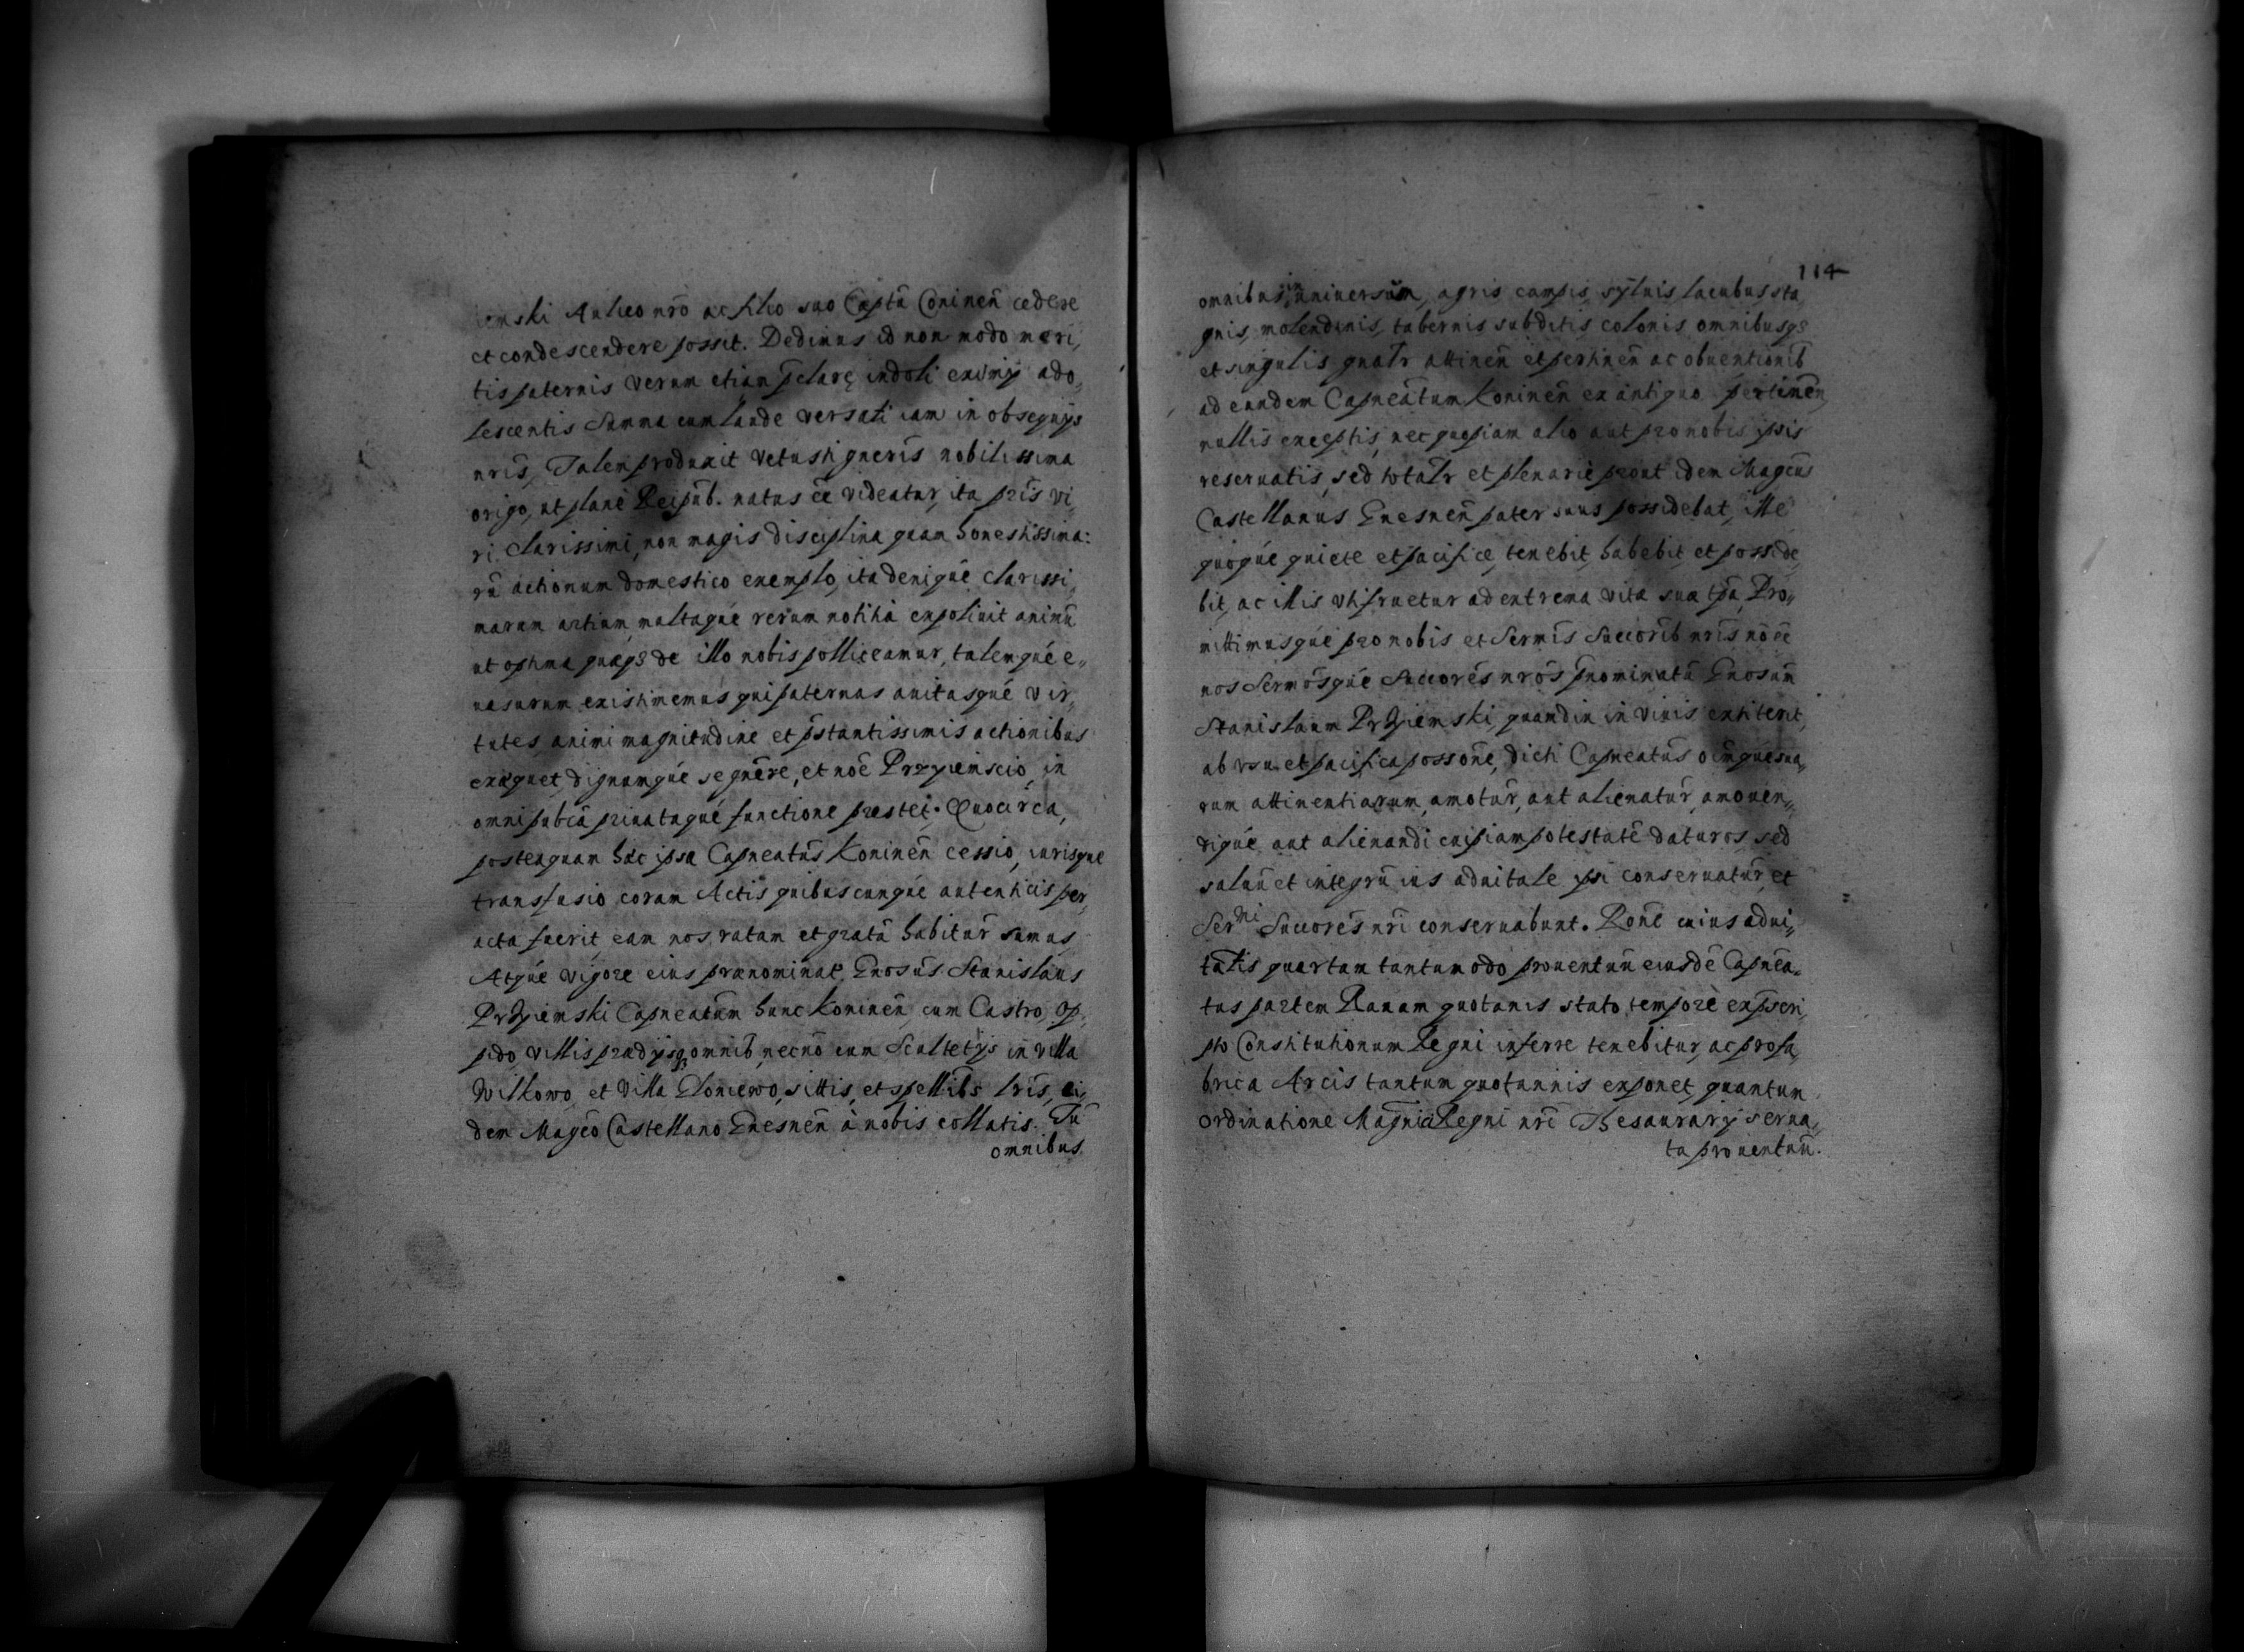 ienski Aulico nrõ ac filio suo Captũ Conineñ cedere
et condescendere possit. Dedimus id non modo meri,,
tis paternis verum etiam p̃clarę indoli eximij ado,,
lescentis summa cum laude versati iam in obsequijs
nris̃, Talem produxit vetusti gneris̃ nobilissima
origo, ut plane Reipub̃. natus eẽ videatur, ita pris̃ vi,,
ri clarissimi, non magis disciplina quam honestissima:
rũ actionum domestico exemplo, ita denique clarissi,,
marum artium multaque rerum notitia expolivit animũ
ut optima quaeqз de illo nobis polliceamur, talemque e,,
vasurum existimemus qui paternas avitasque vir,,
tutes, animi magnitudine et p̃stantissimis actionibus
exaequet dignumque se gnẽre, et noẽ Przyiemscio, in
omni publ̃ca privataque functione prestet. Quocirca,
posteaquam haec ipsa Capneatus̃ Koninen̄ cessio, iurisque
transfusio coram Actis quibuscunque autenticis per,,
acta fuerit, eam nos ratam et gratã habitur̃ sumus,
Atque vigore eius praenominat̃ Gnosus̃ Stanislaus
Przyiemski Capneatum̃ hunc Koninen̄, cum Castro, op,,
pido, villis praedijsqз omnib̃, necnõ cum Scultetijs in villa
Wilkowo, et villa Gloniewo, sittis, et spẽllibs lris̃, ei,,
dem Magcõ Castellano Gnesnen̄ à nobis collatis. Tũ
omnibus
114
omnibus in universum, agris campis, sylvis lacubus, sta,,
gnis, molendinis, tabernis subditis colonis omnibusqз
et singulis gnalr̃ attinen̄ et pertinen̄ ac obventionib̃
ad eundem Capneãtum Koninen̄ ex antiquo pertinen̄,
nullis exceptis, nec quopiam alio aut pro nobis ipsis
reservatis, sed totalr̃ et plenarie prout idem Magcus̃
Castellanus Gnesnen̄ pater suus possidebat, ille
quoque quiete et pacifice, tenebit, habebit, et posside,,
bit, ac illis utifruetur ad extrema vitae suae tp̃a, Pro,,
mittimusque pro nobis et Sermis̃ Succorib̃ nris̃ nõ eẽ
nos Sermosque Succores̃ nros̃ p̃nominatũ Gnosum̃
Stanislaum Przyiemski, quamdiu in vivis extiterit,
ab usu et pacifica possone, dicti Capneatus̃ oĩmque sua,,
rum attinentiarum, amotur̃, aut alienatur̃, amoven,,
dique aut alienandi cuipiam potestatẽ daturos sed
salvũ et integrũ ius advitale ipsi conservatur̃, et
Serni Succores̃ nri conservabunt. Ronẽ cuius advi,,
talis̃ quartam tantummodo proventuũ eiusdẽ Capnea,,
tus partem Ravam quotanis stato tempore ex p̃scri,,
pto Constitutionum Regni inferre tenebitur, ac pro fa,,
brica Arcis tantum quotannis exponet, quantum
ordinatione Magnici Regni nri Thesaurarij serva,,
ta proventuũ.